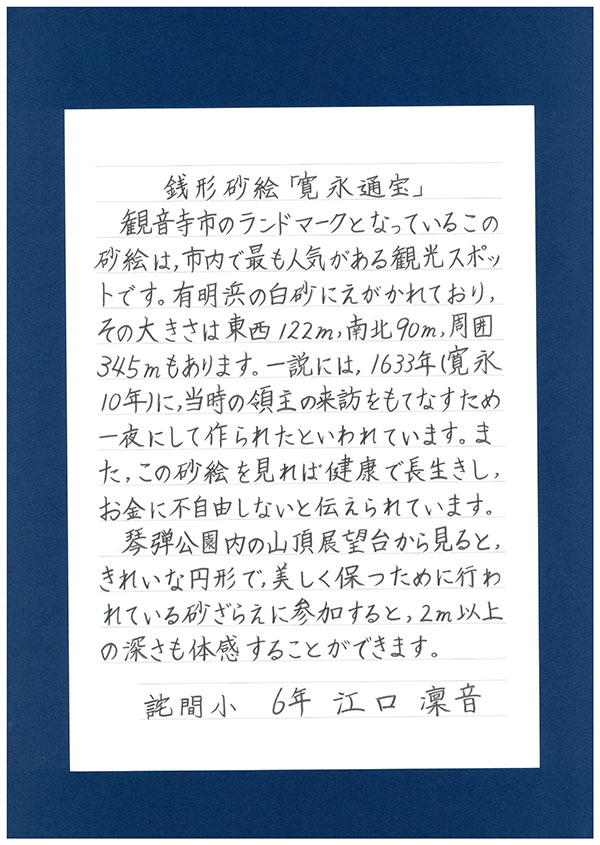 銭形砂絵「寛永通宝」
観音寺市のランドマークとなっているこの
砂絵は,市内で最も人気がある観光スポッ
トです。有明浜の白砂にえがかれており,
その大きさは東西122m,南北90m,周囲
345mもあります。一説には,1633年(寛永
10年)に,当時の領主の来訪をもてなすため
一夜にして作られたといわれています。ま
た,この砂絵を見れば健康で長生きし,
お金に不自由しないと伝えられています。
琴弾公園内の山頂展望台から見ると,
きれいな円形で,美しく保つために行わ
れている砂ざらえに参加すると,2m以上
の深さも体感することができます。
詫間小 6年 江口 凜音